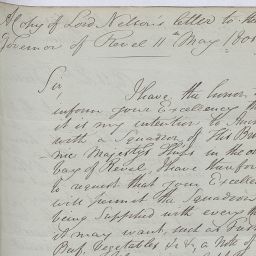 A Copy of Lord Nelson's letter to the
Governor of Revel 11th May 1801
Sir
I have the honor
inform your Excellency th
it is my intention to
with a Squadron of His Br
nic Majesty's Ships in the o
bay of Revel, I have therefor
to request that your Excelle
will permit the Squadron
being Supplied with every th
it may want, such as Fres
Beef, Vegetables &c &c, a Note of